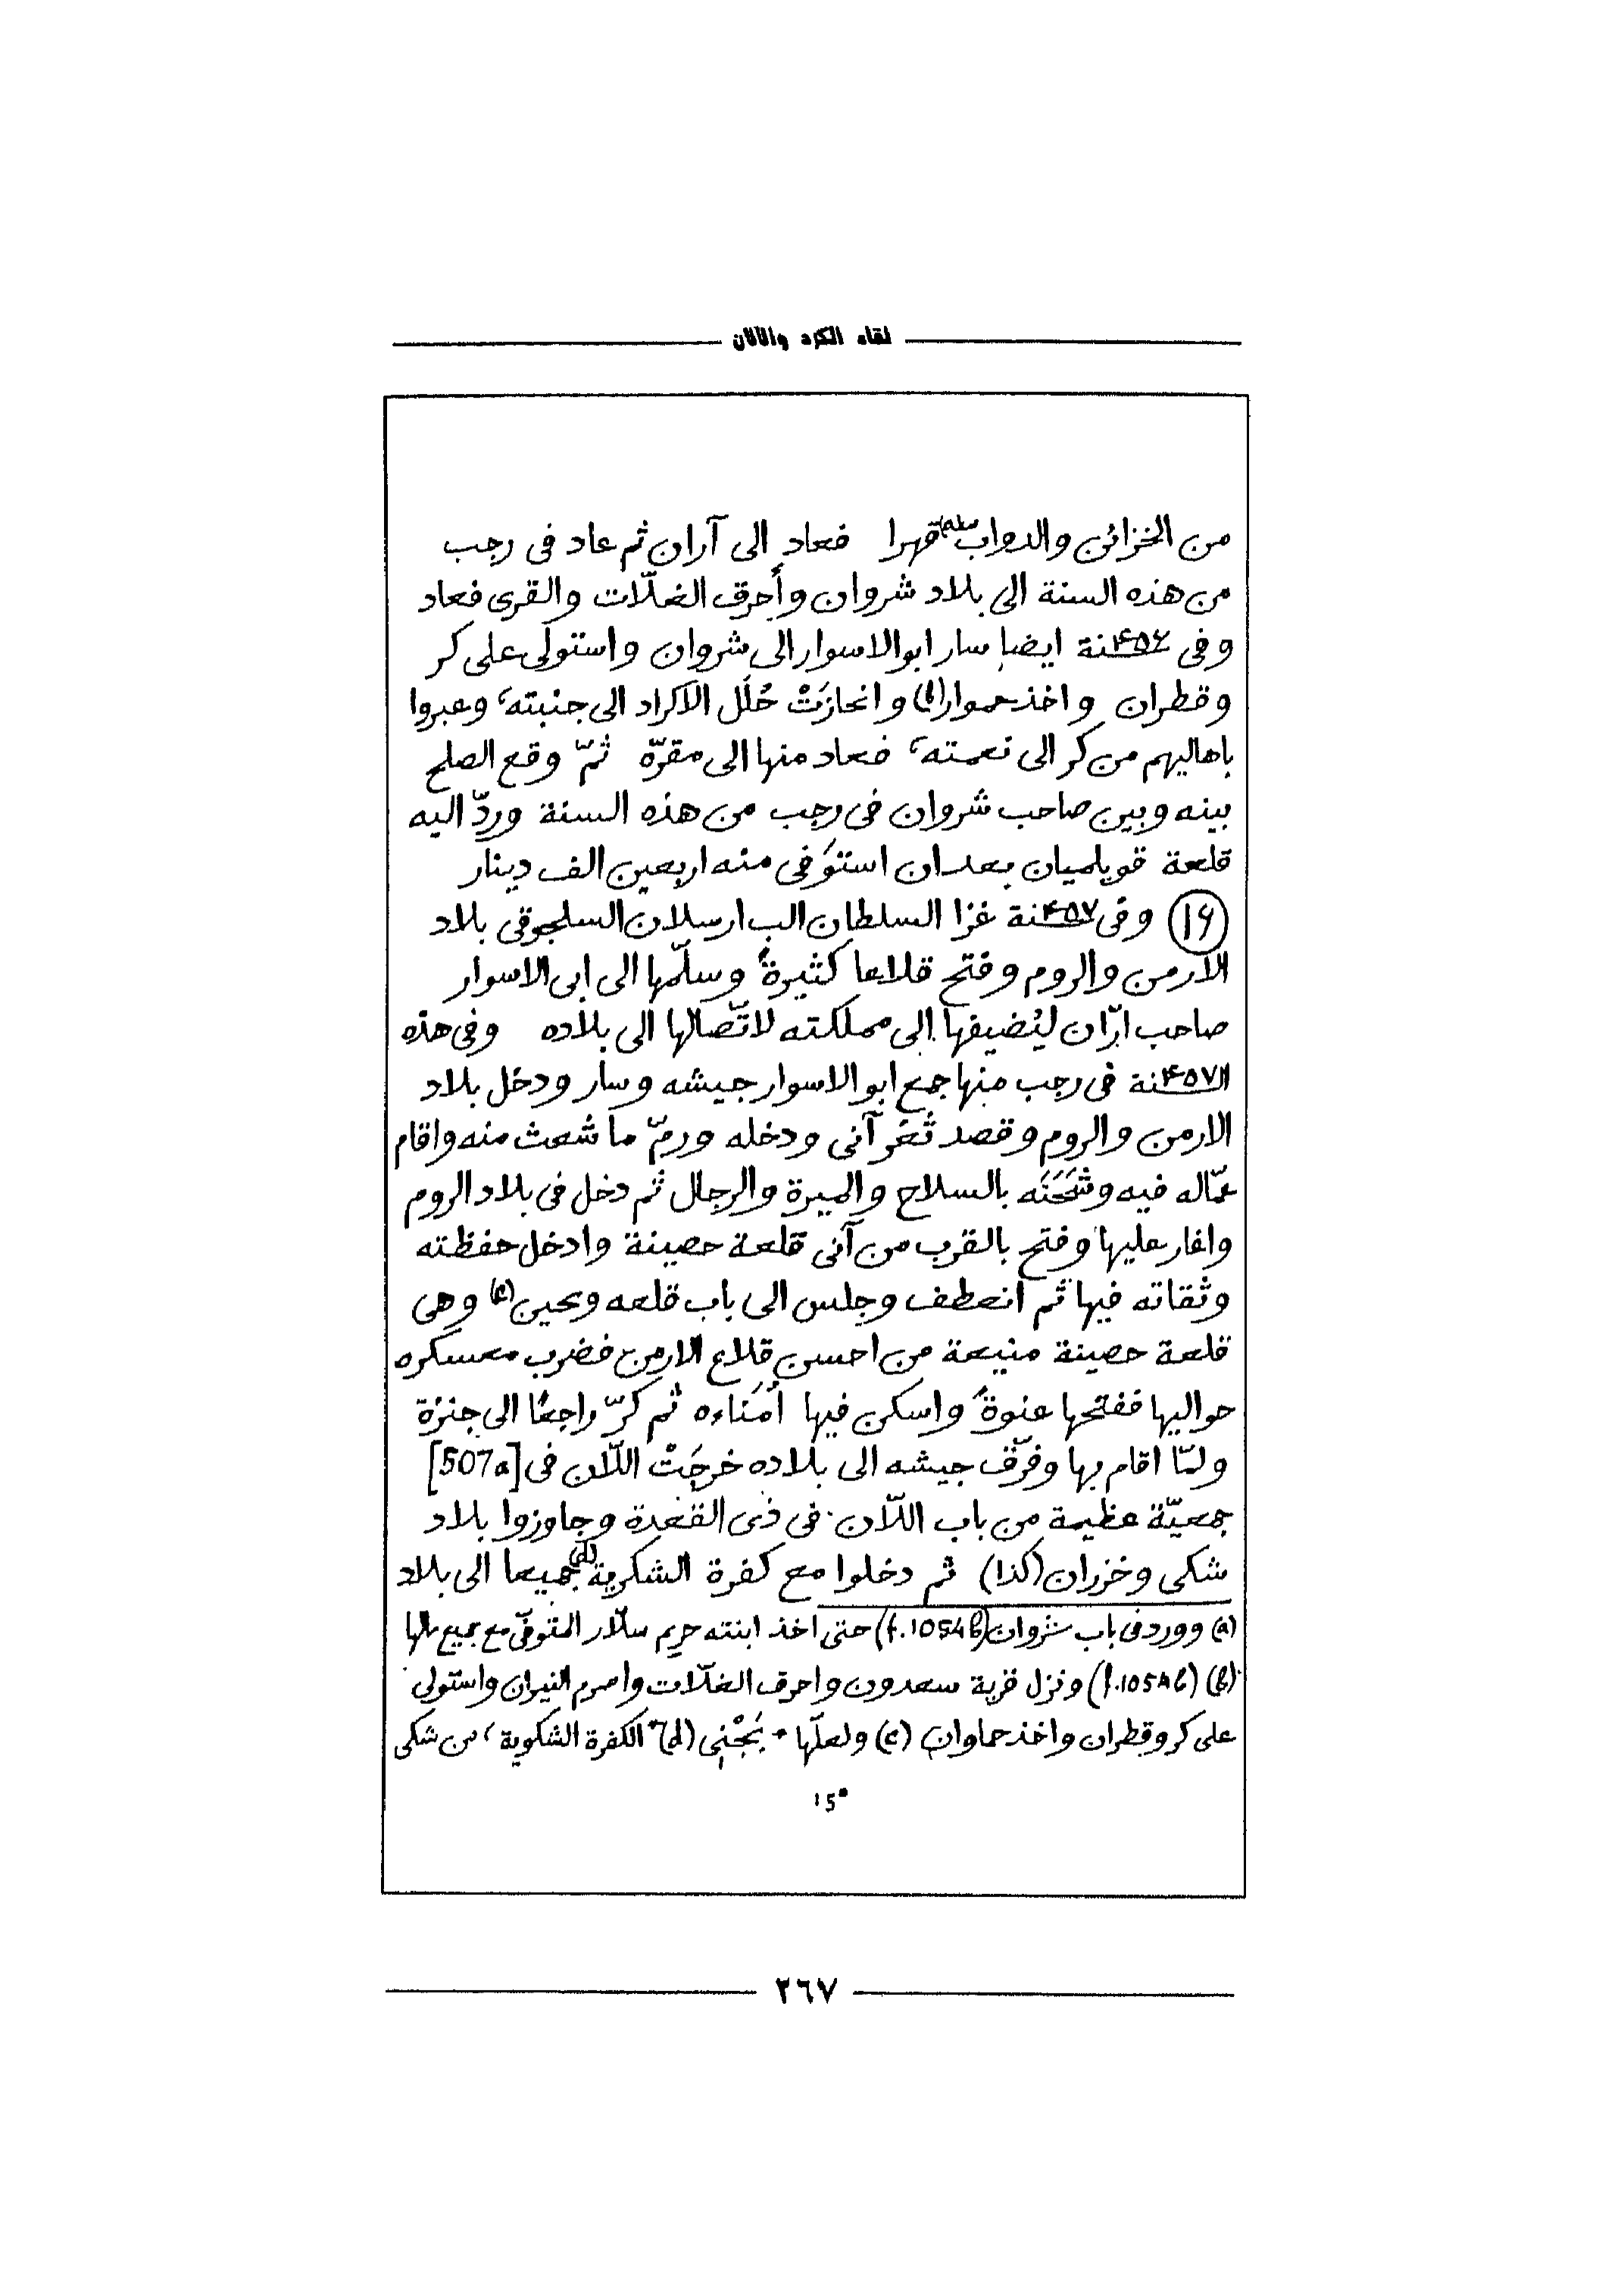 لقاء الكرد والآلان
من الخزائن والدواب (a) قهرا فعاد الى آران ثم عاد فى رجب
من هذه السنة الى بلاد شروان وأحرق الغلّات والقرى فعاد
وفى سنة ۴۵۶ ايضا سار ابو الاسوار الى شروان واستولى على كر
وقطران واخذ حموار (b) وانحازَتْ حُلَل الاكراد الى جنبته، وعبروا
باهاليهم من كر الى نعمته، فعاد منها الى مقرّه ثمّ وقع الصلح
بينه وبين صاحب شروان فى رجب من هذه السنة وردّ اليه
قلعة قويلميان بعد ان استوَفى منه اربعين الف دينار
(۱۶) وفى سنة ۴۵۷ غزا السلطان الب ارسلان السلجوقى بلاد
الارمن والروم وفتح قلاعا كثيرة وسلّمها الى ابى الاسوار
صاحب ارّان ليُضيفها الى مملكته لاتّصالها الى بلاده وفى هذه
السنة ۴۵۷ فى رجب منها جمع ابو الاسوار جيشه وسار ودخل بلاد
الارمن والروم وقصد ثَغر آنى ودخله ورمّ ما شعث منه واقام
عمّاله فيه وشَحَنَه بالسلاح والميرة والرجال ثم دخل فى بلاد الروم
واغار عليها وفتح بالقرب من آنى قلعة حصينة وادخل حفظته
وثقاته فيها ثم انعطف وجلس الى باب قلعه ويحين (c) وهى
قلعة حصينة منيعة من احسن قلاع الارمن فضرب معسكره
حواليها ففتحها عنوةً واسكن فيها أمَناءه ثم كرّ راجعًا الى جنزة
ولمّا اقام بها وفرّق جيشه الى بلاده خرجَتْ اللّان فى [507a]
جمعيّة عظيمة من باب اللّان فى ذى القعدة وجاوزوا بلاد
شكى وخزران (كذا) ثم دخلوا مع كفرة الشكرية (d) جميعا الى بلاد
(a) وورد فى باب شروان (f. 1054b) حتى اخذ ابنته حريم سلّار المتوفّى مع جميع مالها
(b) (f. 1054b) ونزل قرية سعدون واحرف الغلّات واصرم النيران واستولى
على كر وقطران واخذ حماوان (c) ولعلّها * بَجْنِى (d) * الكفرة الشكوية، من شكى
15*
٢٦٧